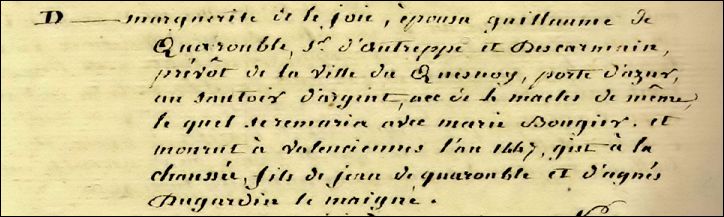 D — marguerite de le joie, épousa guillaume de
Quarouble, Sr. d'Autreppe et Descarmain,
prévôt de la ville du Quesnoy, porte d'azur,
au Sautoir d'argent, acc de 4 macles de même,
le quel se remaria avec marie Bougier. et
mourut à valenciennes l'an 1447, gist à la
chaussée, fils de jean de quarouble et d'agnés
Dugardin le maigné.